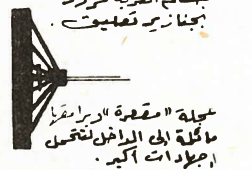 بجنازير تعليق .
عجلة "مقعرة" برامقها
مائلة إلى الداخل لتتحمل
إجهادات أكبر .